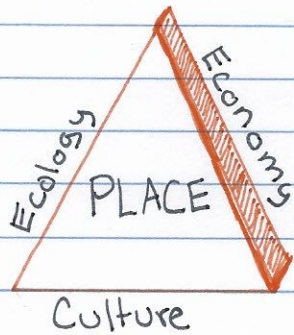 Ecology
Economy
PLACE
Culture